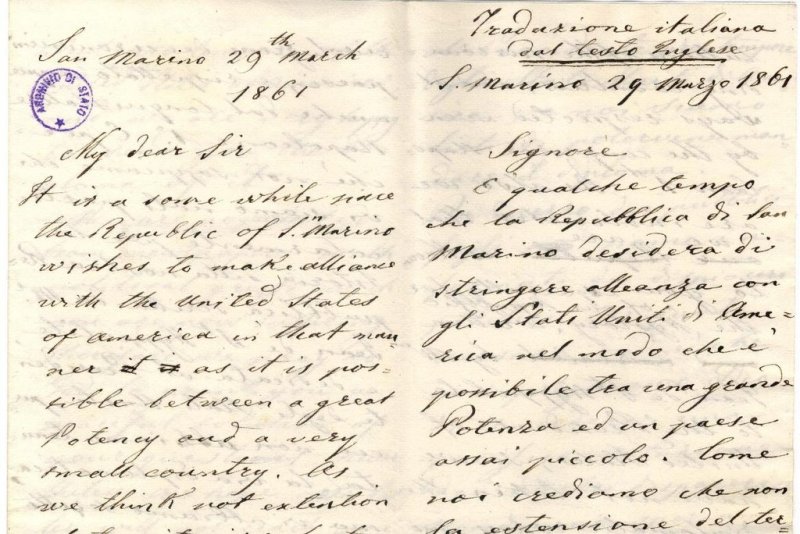 San Marino 29th March
1861
ARCHIVIO DI STATO
My dear Sir
It is a some while since
the Republic of S.n Marino
wishes to make alliance
with the United States
of america in that man-
ner it is as it is pos-
sible between a great
Potency and a very
small country. As
we think not extention
Traduzione italiana
dal testo Inglese
S. Marino 29 Marzo 1861
Signore
È qualche tempo
che la Repubblica di San
Marino desidera di
stringere alleanza con
gli Stati Uniti di Ame-
rica nel modo che è
possibile tra una grande
Potenza ed un paese
assai piccolo. Come
noi crediamo che non
la estensione del ter-